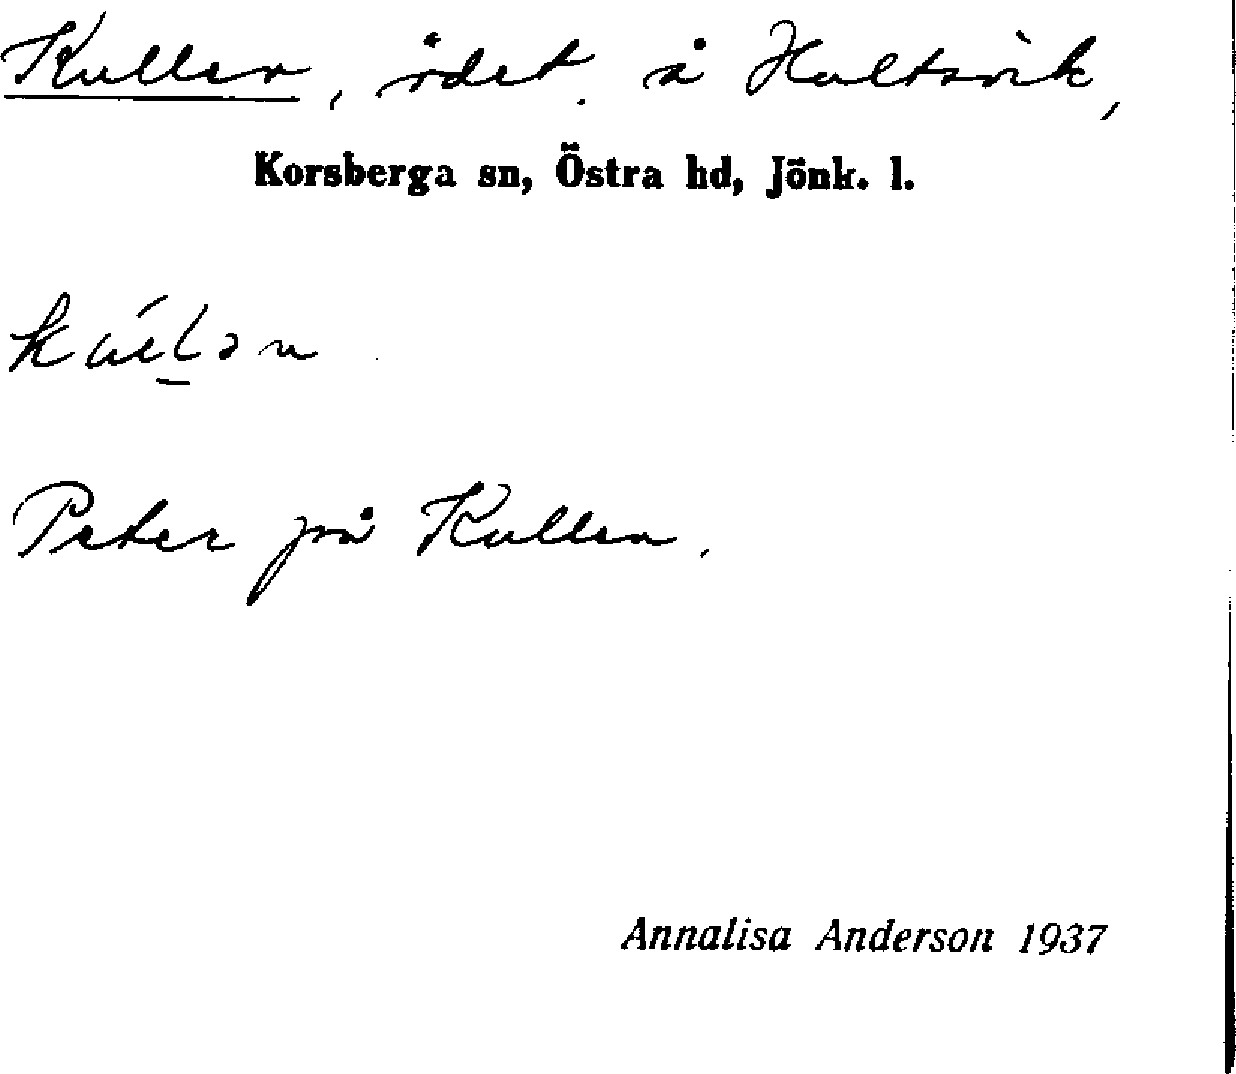 Kullen, ödet. å Hultsvik,
Korsberga sn, Östra hd, Jönk. l.
Peter på Kullen.
Annalisa Anderson 1937